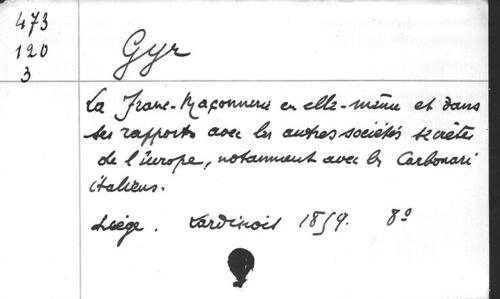 473
120
3
Gyr
La Franc-Maçonnerie en elle-même et dans
ses rapports avec les autres sociétés secrètes
de l'Europe, notamment avec les Carbonari
italiens.
Liége. Lardinois 1859. 8°